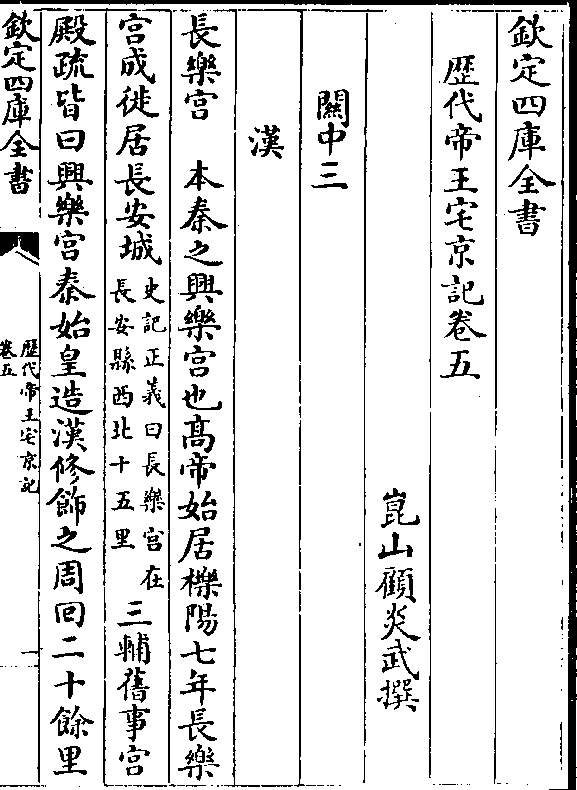 欽定四庫全書
歴代帝王宅京記卷五
崑山顧炎武撰
關中三
漢
長樂宫　本秦之興樂宫也髙帝始居櫟陽七年長樂
宫成徙居長安城
史記正義曰長樂宫在
長安縣西北十五里
三輔舊事宫
殿疏皆曰興樂宫秦始皇造漢修飾之周回二十餘里
欽定四庫全書
歴代帝王宅京記
卷五
一